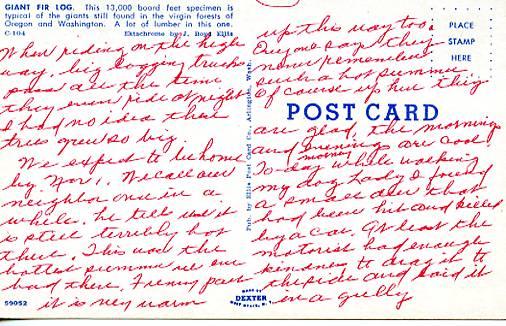 GIANT FIR LOG. This 13,000 board feet specimen is
typical of the giants still found in the virgin forests of
Oregon and Washington. A lot of lumber in this one.
C-104 Ektachrome by J. Boyd Ellis
When riding on the high
way, big logging trucks
pass all the time
they even ride at night
I had no idea these
trees grew so big.
We expect to be home
by Nov 1. We call our
neighbor once in a
while. He tells us it
is still terribly hot
there. This was the
hottest summer we ever
had there. Funny part
it is very warm
59052
up this way too.
Everyone says they
never remember
such a hot summer.
Of course up here they
PLACE
STAMP
HERE
POST CARD
are glad, the mornings
and evenings are cool.
To-day morning while walking
my dog Lady I found
a small deer that
had been hit and killed
by a car. At least the
motorist had enough
kindness to drag it to
the side and laid it
in a gully
Pub. by Ellis Post Card Co., Arlington, Wash.
MADE BY
DEXTER
WEST NYACK, N.Y.